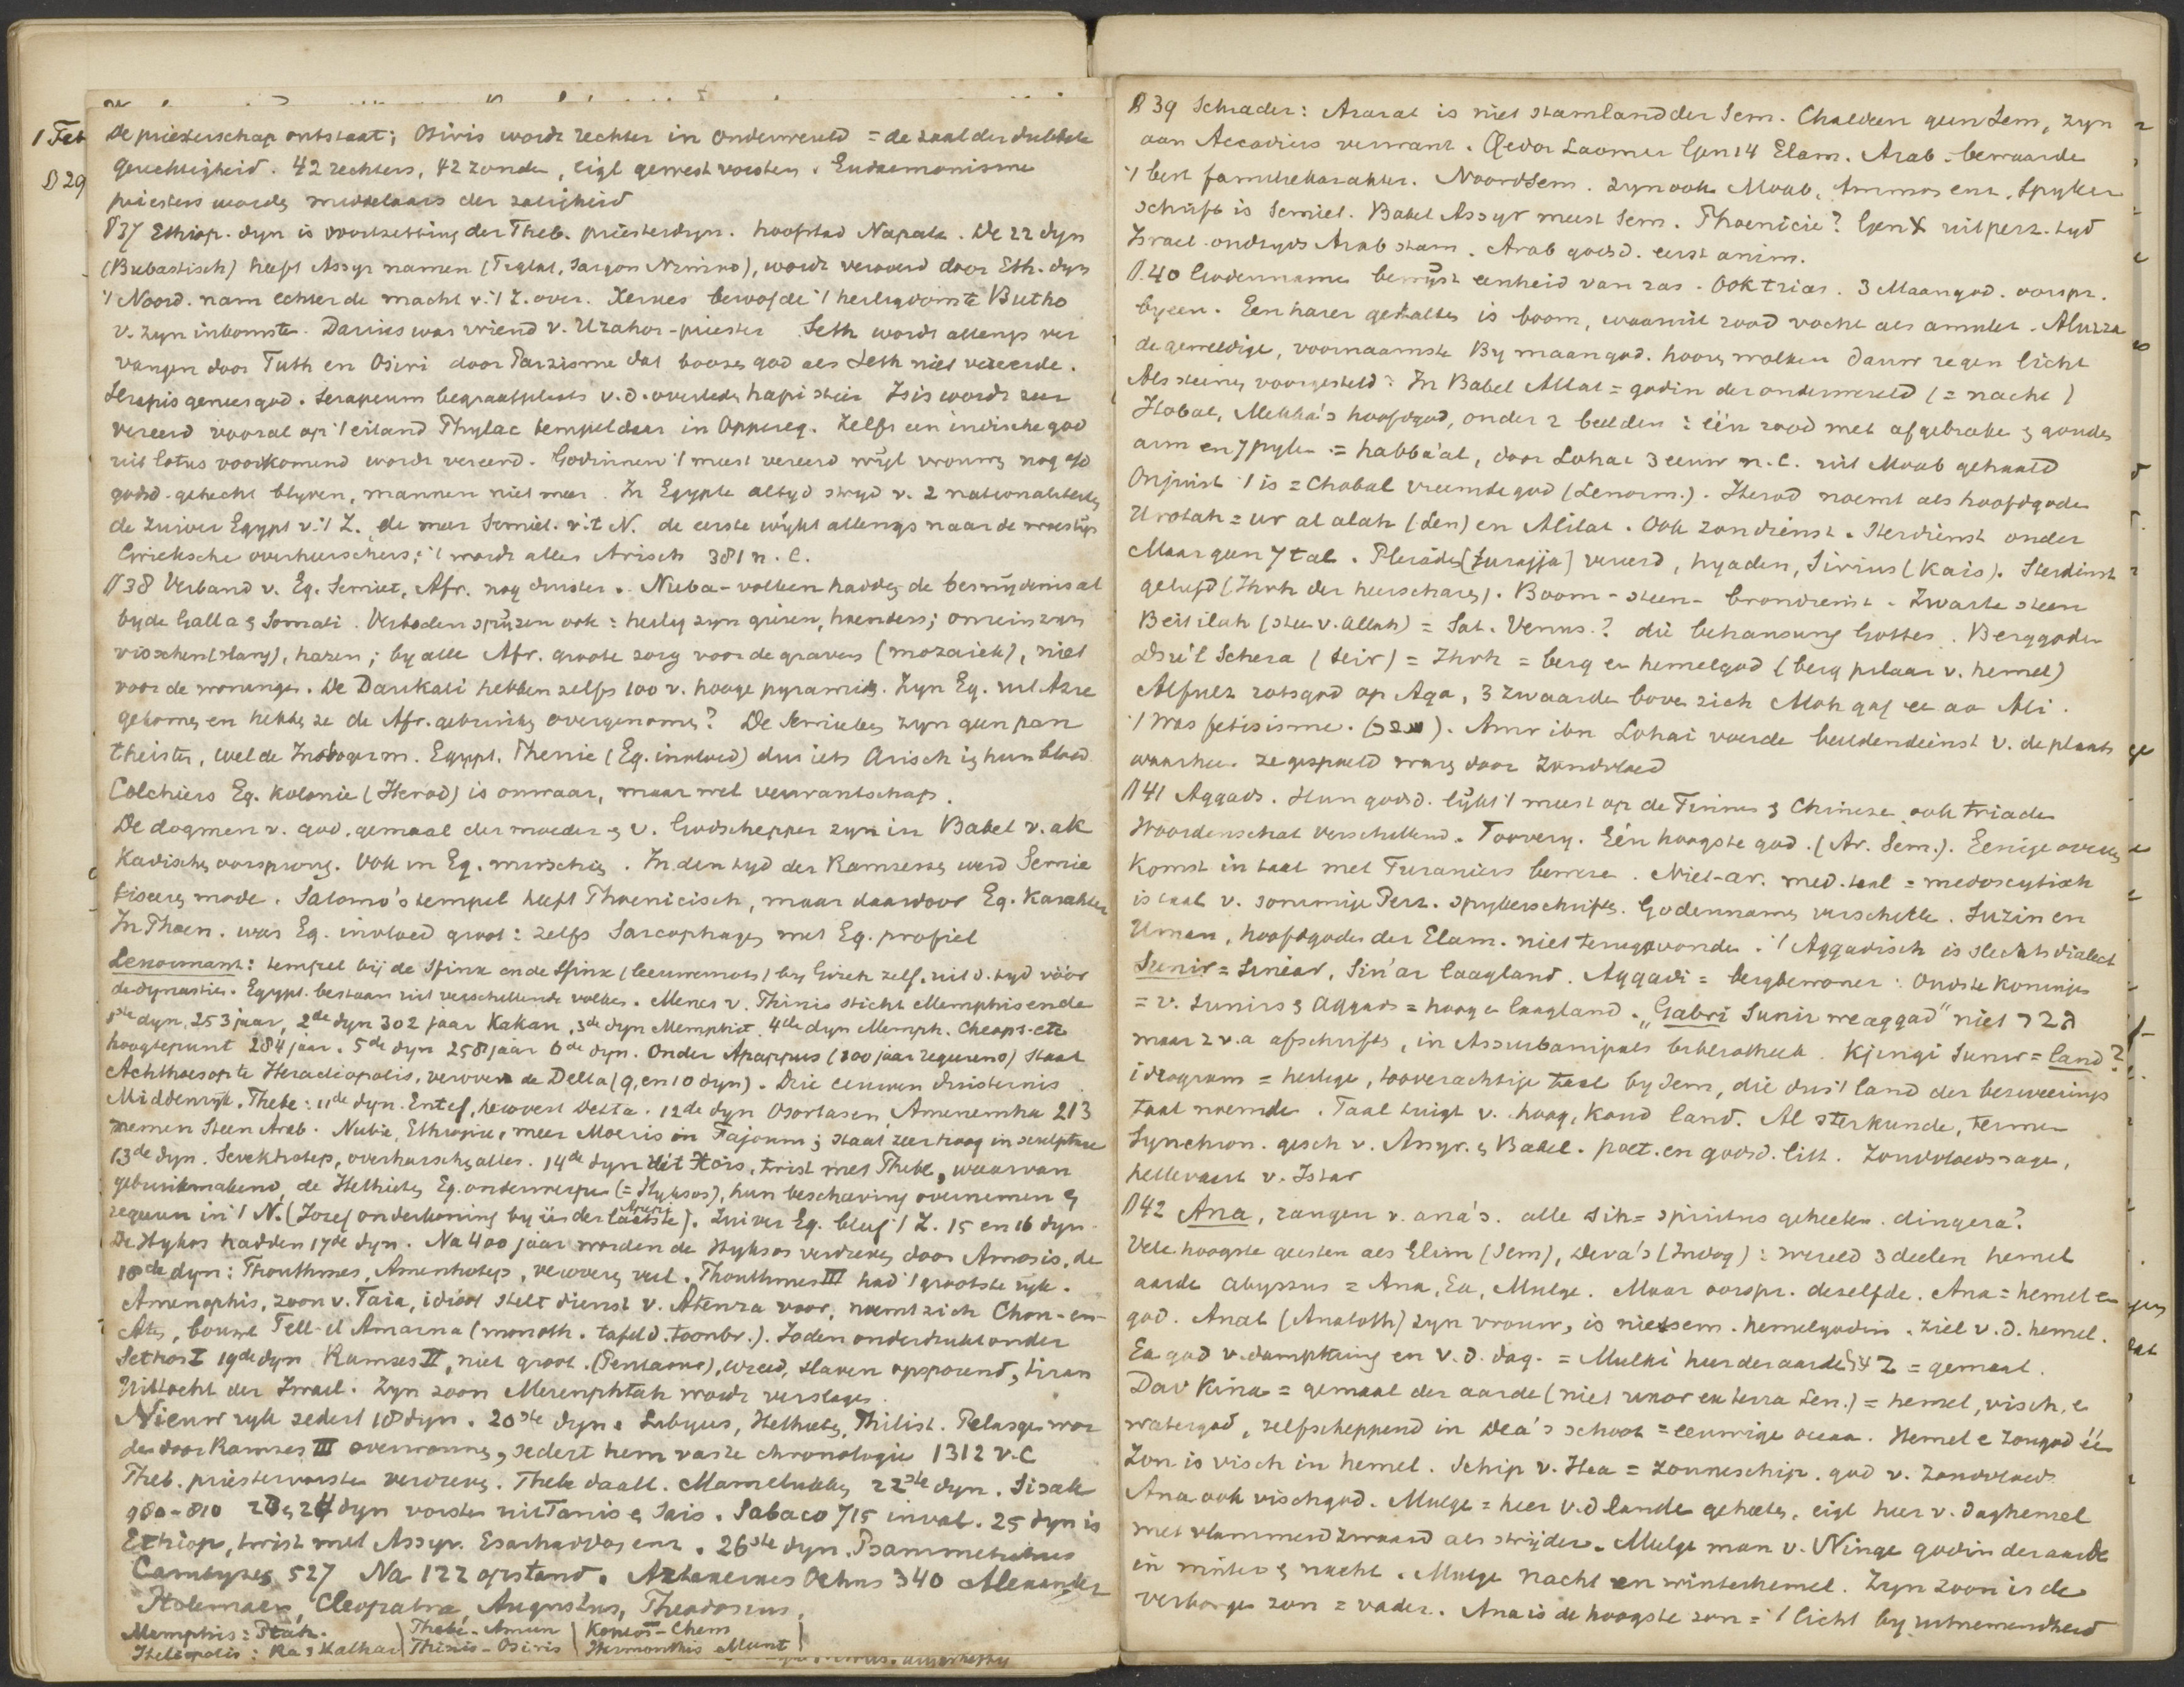 1 Feb De priesterschap ontstaat; Osiris wordt rechter in onderwereld = de zaal der dubbele
gerechtigheid. 42 rechters, 42 zonden, eigl gewest vorsten. Eudaemonisme
D 29 priesters worden middelaars der zaligheid
D37 Ethiop. dyn is voortzetting der Theb. priesterdyn. hoofstad Napata. De 22 dyn
(Bubastisch) heeft Assyr namen (Teglat, Sargon Nimrod), wordt veroverd door Eth. dyn
't Noord. nam echter de macht v. 't Z. over. Xerxes beroofde 't heiligdom te Butho
v. zyn inkomsten. Darius was vriend v. Uzahor-priester Seth wordt allengs ver
vangen door Tuth en Osiri door Parzisme dat booze god als Seth niet vereerde.
Serapis geneesgod. Serapeum begraafplaats v.d. overleden hapi stier Isis wordt zeer
vereerd vooral op 't eiland Phylae tempel daar in Oppereg. Zelfs een indische god
uit lotus voorkomend wordt vereerd. Godinnen 't meest vereerd wijl vrouwen nog old
godsd. gehecht blyven, mannen niet meer. In Egypte altyd stryd v. 2 nationaliteiten
de zuiver Egypt v. 't Z. de meer Semiet. v. 't N. de eerste wijkt allengs naar de woestijn
Grieksche overheerschers: 't wordt alles Arisch 381 n. C.
D38 Verband v. Eg. Semiet, Afr. nog duister. Nuba-volken hadden de besnijdenis al
by de Galla & Somali. Verboden spijzen ook: heilig zyn gieren, hoenders; onrein zyn
visschen (slang), hazen; by alle Afr. groote zorg voor de graven (mozaiek), niet
voor de woningen. De Dankali hebben zelfs 100 v. hooge pyramids. Zyn Eg. uit Azie
gekomen en hebben ze de Afr. gebruiken overgenomen? De Semieten zyn geen pan
theisten, wel de Indogerm. Egypt. Phenic (Eg. invloed) dus iets Arisch in hun bloed
Colchiers Eg. kolonie (Herod) is onwaar, maar wel verwantschap.
De dogmen v. god, gemaal der moeder & v. Godschepper zyn in Babel v. ak
kadische oorsprong. Ook in Eg. misschien. In den tyd der Ramsessen werd Semie
tiseeren mode. Salomo's tempel heeft Phoenicisch, maar daardoor Eg. karakter
In Phoen. was Eg. invloed groot: zelfs Sarcophagen met Eg. profiel
Lenormant: tempel bij de Sfinx en de Sfinx (leeuwenrots) by Gizeh zelf, uit d. tyd vóór
de dynastien. Egypt. bestaan uit verschillende volken. Menes v. Thinis sticht Memphis en de
1ste dyn. 253 jaar, 2de dyn 302 jaar Kakau, 3de dyn Memphiet 4de dyn Memph. Cheops etc
hoogtepunt 284 jaar. 5de dyn 258 jaar 6de dyn. Onder Apappus (100 jaar regeerend) staat
Achthoes op te Heracleopolis, verovert de Delta (9, en 10 dyn). Drie eeuwen duisternis
Middenrijk. Thebe: 11de dyn. Entef, herovert Delta. 12de dyn Osortasen, Amenemha 213
nemen Steen Arab. Nubie, Ethiopie, meer Moeris in Fajoum; staat zeer hoog in sculptuur
13de dyn. Sevekhotep, overheerschen alles. 14de dyn uit Xois, twist met Thebe, waarvan
gebruikmakend de Hethieten Eg. onderwerpen (= Hyksos), hun beschaving overnemen &
regeeren in 't N. (Jozef onderkoning by een der laatste). Zuiver Eg. bleef 't Z. 15 en 16 dyn.
De Hyksos hadden 17de dyn. Na 400 jaar worden de Hyksos verdreven door Amosis, de
18de dyn: Thouthmes, Amenhotep, veroveren veel. Thouthmes III had 't grootste ryk.
Amenophis, zoon v. Taia, idioot stelt dienst v. Atenra voor, noemt zich Chou-en-
Aten, bouwt Tell-el Amarna (monoth. tafel d. toonbr.). Joden onderdrukt onder
Sethos I 19de dyn Ramses II, niet groot. (Pentaour), wreed, slaven opsporend, tiran
Uittocht der Israel. Zyn zoon Merenphtah wordt verslagen.
Nieuw ryk sedert 18 dyn. 20ste dyn. Libyers, Hethieten, Philist. Pelasgen wor
den door Ramses III overwonnen, sedert hem vaste chronologie 1312 v. C
Theb. priestervorsten verdreven. Thebe daalt. Mamelukken 22ste dyn. Sisak
980-810 23 & 24 dyn vorsten uit Tanis & Sais. Sabaco 715 inval. 25 dyn is
Ethiop, twist met Assyr. Esarhaddon enz. 26ste dyn. Psammetichus
Cambyses 527 Na 122 opstand. Artaxerxes Ochus 340 Alexander
Ptolemaeus, Cleopatra, Augustus, Theodosius,
Memphis: Ptah. | Thebe-Amun | Koptos-Chem
Heliopolis: Ra & Hathar | Thinis-Osiris | Hermonthis Munt
D 39 Schrader: Ararat is niet stamland der Sem. Chaldeen geen Sem, zyn
aan Accadiers verwant. Qedor Laomer Gen 14 Elam. Arab. bewaarde
't best familiekarakter. Noordsem. zyn ook Moab, Ammon enz. Spyker
schrift is Semiet. Babel Assyr meest Sem. Phoenicie? Gen X uit perz. tyd
Israel ondtyds Arab stam. Arab godsd. eerst anim.
D.40 Godennamen bewijst eenheid van ras. Ook trias. 3 Maangod. oorspr.
byeen. Een harer gestalten is boom, waaruit rood vocht als amulet. Aluzza
de geweldige, voornaamste By maangod. hoorn wolken dauw regen licht
Als steinen voorgesteld: In Babel Allat = godin der onderwereld (= nacht)
Hobal, Mekka's hoofdgod, onder 2 beelden: één rood met afgebroken & gouden
arm en 7 pylen = habba'al, door Lohai 3 eeuw n. C. uit Moab gehaald
Onjuist 't is = Chobal vreemde god (Lenorm.). Herod noemt als hoofdgoden
Urotah = ur al alah (Len) en Alilat. Ook zondienst. Sterdienst onder
Maar geen 7 tal. Pleiaden [turajja] vereerd, hyaden, Sirius (Kais). Sterdienst
geliefd (Jhvh der heerscharen). Boom-steen-brondienst. Zwarte steen
Beit ilah (steen v. Allah) = Sat. Venus? die behausung Gottes. Berggoden
Dsu'l Schera (Seir) = Jhvh = berg en hemelgod (berg pilaar v. hemel)
Alfuls rotsgod op Aga, 3 zwaarden boven zich Moh gaf ee aan Ali.
't Was fetisisme. Amr ibn Lohai voerde beeldendienst v. de plaats
waarheen ze gespoeld waren door Zondvloed
D 41 Aggads. Hun godsd. lijkt 't meest op de Finnen & Chineze ook triaden
Woordenschat verschillend. Toovery. Eén hoogste god. (Ar. Sem.). Eenige overeen
komst in taal met Turaniers bewezen. Niet-ar. med. taal = medoscytisch
is taal v. sommige Perz. spykerschriften. Godennamen verschillen. Suzin en
Uman, hoofdgoden der Elam. niet teruggevonden. 't Aggadisch is slechts dialect
Sunir = Sinéar, Sin'ar laagland. Aggadi = bergbewoner. Oudste koningen
= v. Sunirs & Aggads = hoog en laagland. "Gabri Sunir we aggad" niet גבר
maar 2 v.a afschriften, in Assurbanipals bibliotheek. Kjengi Sunir = land?
ideogram = heilige, tooverachtige taal by Sem, die dus 't land der bezweerings
taal noemden. Taal tuigt v. hoog, koud land. Al sterkunde, termen
Synchron. gesch v. Assyr. & Babel. poet. en godsd. litt. Zondvloedssage,
hellevaart v. Istar
D42 Ana, zangen v. ana's. alle Sik = spiritus geheeten. dingera?
Vele hoogste geesten als Elim (Sem), Deva's (Indog): wereld 3 deelen hemel
aarde abyssus = Ana, Ea, Mulge. Maar oorspr. dezelfde. Ana = hemel en
god. Anat (Anatoth) zyn vrouw, is niet sem. hemelgodin. Ziel v.d. hemel.
Ea god v. dampkring en v.d. dag. = Mulki heer der aarde = gemaal.
Dav Kina = gemaal der aarde (niet uxor ex terra Len.) = hemel, visch, e
watergod, zelfscheppend in Dea's schoot = eeuwige oceaan. Hemel e Zongod één
Zon is visch in hemel. Schip v. Hea = zonneschip. god v. zondvloed.
Ana ook vischgod. Mulge = heer v.d lande geheeten, eigl heer v. daghemel
met vlammend zwaard als strijder. Mulge man v. Ninge godin der aarde
in winter & nacht. Mulge nacht en winterhemel. Zyn zoon is de
verborgen zon = vader. Ana is de hoogste zon = 't licht by uitnemendheid